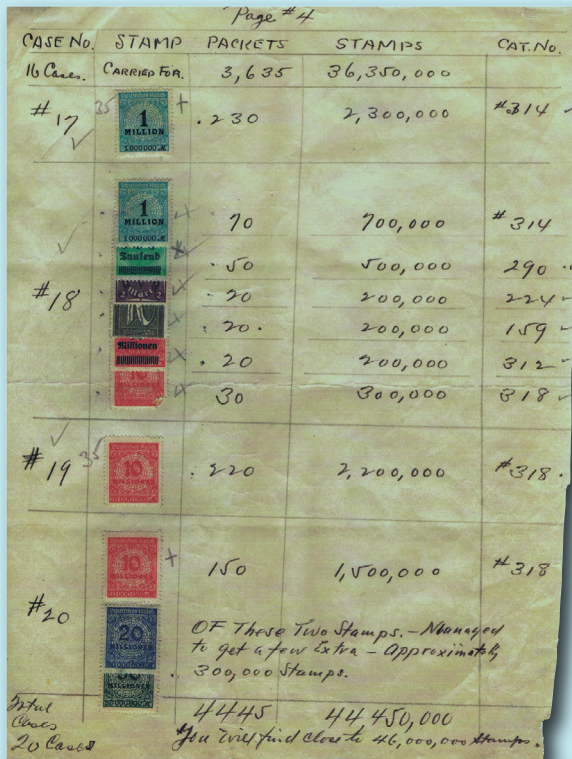 Page #4
CASE NO. STAMP PACKETS STAMPS CAT. NO.
16 Cases. CARRIED FOR. 3,635 36,350,000
#17 35 + .230 2,300,000 #314
1
MILLION
1000000 M
70 700,000 #314
1
MILLION
1000000 M
Tausend .50 500,000 290
#18 .20 200,000 224
.20. 200,000 159
Millionen .20 200,000 312
30 300,000 318
#19 35 .220 2,200,000 #318.
10
MILLIONEN
+ 150 1,500,000 #318
10
MILLIONEN
#20 OF These Two Stamps. – Mananged
20
MILLIONEN
to get a few Extra – Approximately
300,000 Stamps.
Total
Cases 4445 44 450,000
20 Cases You will find close to 46,000,000 stamps.